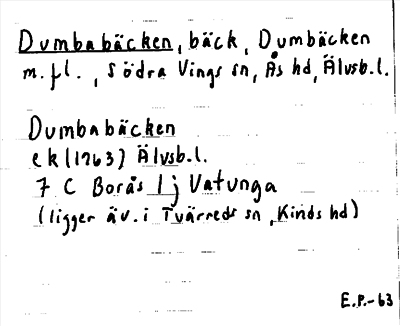 Dumbabäcken, bäck, Dumbäcken
m.fl., Södra Vings sn, Ås hd, Älvsb.l.
Dumbabäcken
ek (1963) Älvsb.l.
7 C Borås 1 j Vatunga
(ligger äv. i Tvärreds sn, Kinds hd)
E.P.-63